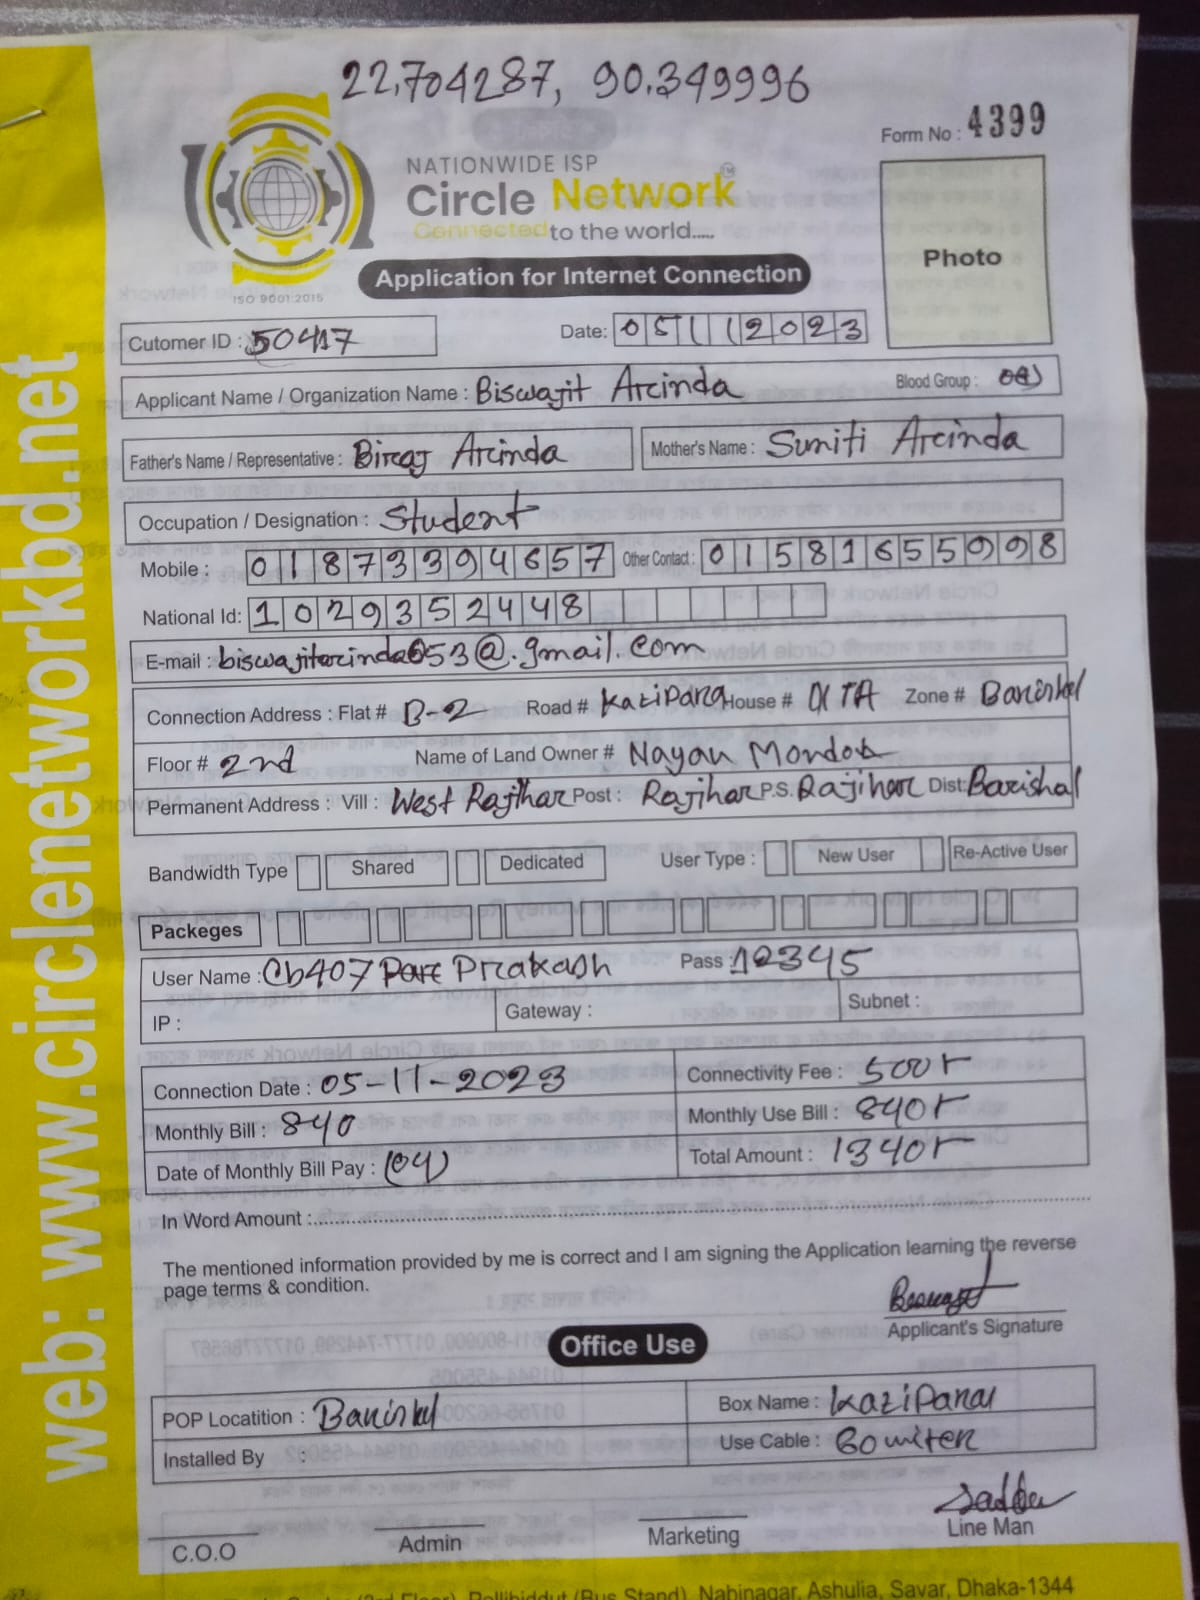 22.704287, 90.349996
Form No : 4399
NATIONWIDE ISP
Circle Network TM
Connected to the world.....
ISO 9001:2015
Application for Internet Connection
Photo
Cutomer ID : 50417 Date: 05112023
Applicant Name / Organization Name : Biswajit Arinda Blood Group :
Father's Name / Representative : Biraj Arinda Mother's Name : Suniti Arinda
Occupation / Designation : Student
Mobile : 01873394657 Other Contact : 01581655998
National Id: 1029352448
E-mail : biswajitarinda653@.gmail.com
Connection Address : Flat # B-2 Road # Kazipara House # Zone # Barishal
Floor # 2nd Name of Land Owner # Nayan Mondol
Permanent Address : Vill : West Rajihar Post : Rajihar P.S. Rajihar Dist: Barishal
Bandwidth Type Shared Dedicated User Type : New User Re-Active User
Packeges
User Name : Cb407 Prakash Pass : 12345
IP : Gateway : Subnet :
Connection Date : 05-11-2023 Connectivity Fee : 500/-
Monthly Bill : 840 Monthly Use Bill : 840/-
Date of Monthly Bill Pay : (04) Total Amount : 1340/-
In Word Amount :
The mentioned information provided by me is correct and I am signing the Application learning the reverse
page terms & condition.
Applicant's Signature
Office Use
POP Locatition : Barishal Box Name : Kazipara
Installed By : Use Cable :
C.O.O Admin Marketing Line Man
Pollibiddut (Bus Stand), Nabinagar, Ashulia, Savar, Dhaka-1344
web: www.circlenetworkbd.net